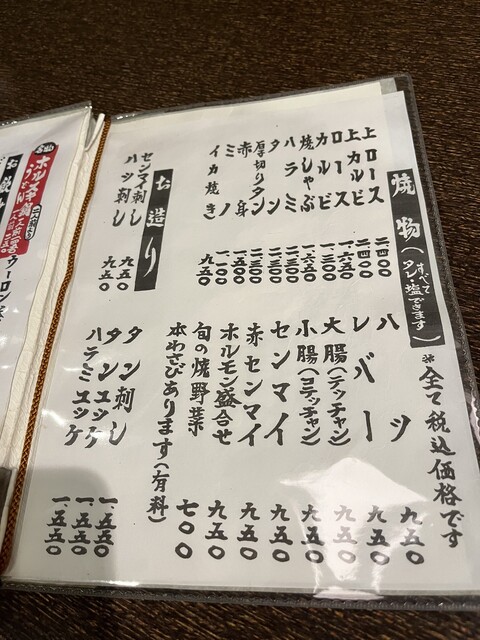 焼物(すべてタレ・塩できます)
※全て税込価格です
上ロース 二四〇〇
上カルビ 二四〇〇
ロース 一.六五〇
カルビ 一三〇〇
焼しゃぶ 一六五〇
ハラミ 一三〇〇
タン 一三〇〇
厚切りタン
赤身
ミノ 一一〇〇
イカ焼き 九五〇
ハツ 九五〇
レバー 九五〇
大腸(テッチャン) 九五〇
小腸(コテッチャン) 九五〇
センマイ 九五〇
赤センマイ 九五〇
ホルモン盛合せ 九五〇
旬の焼野菜 七〇〇
本わさびあります(有料)
お造り
センマイ刺し 九五〇
ハツ刺し 九五〇
タン刺し 一.五五〇
タンユッケ 一.五五〇
ハラミユッケ 一.五五〇
ウーロン茶